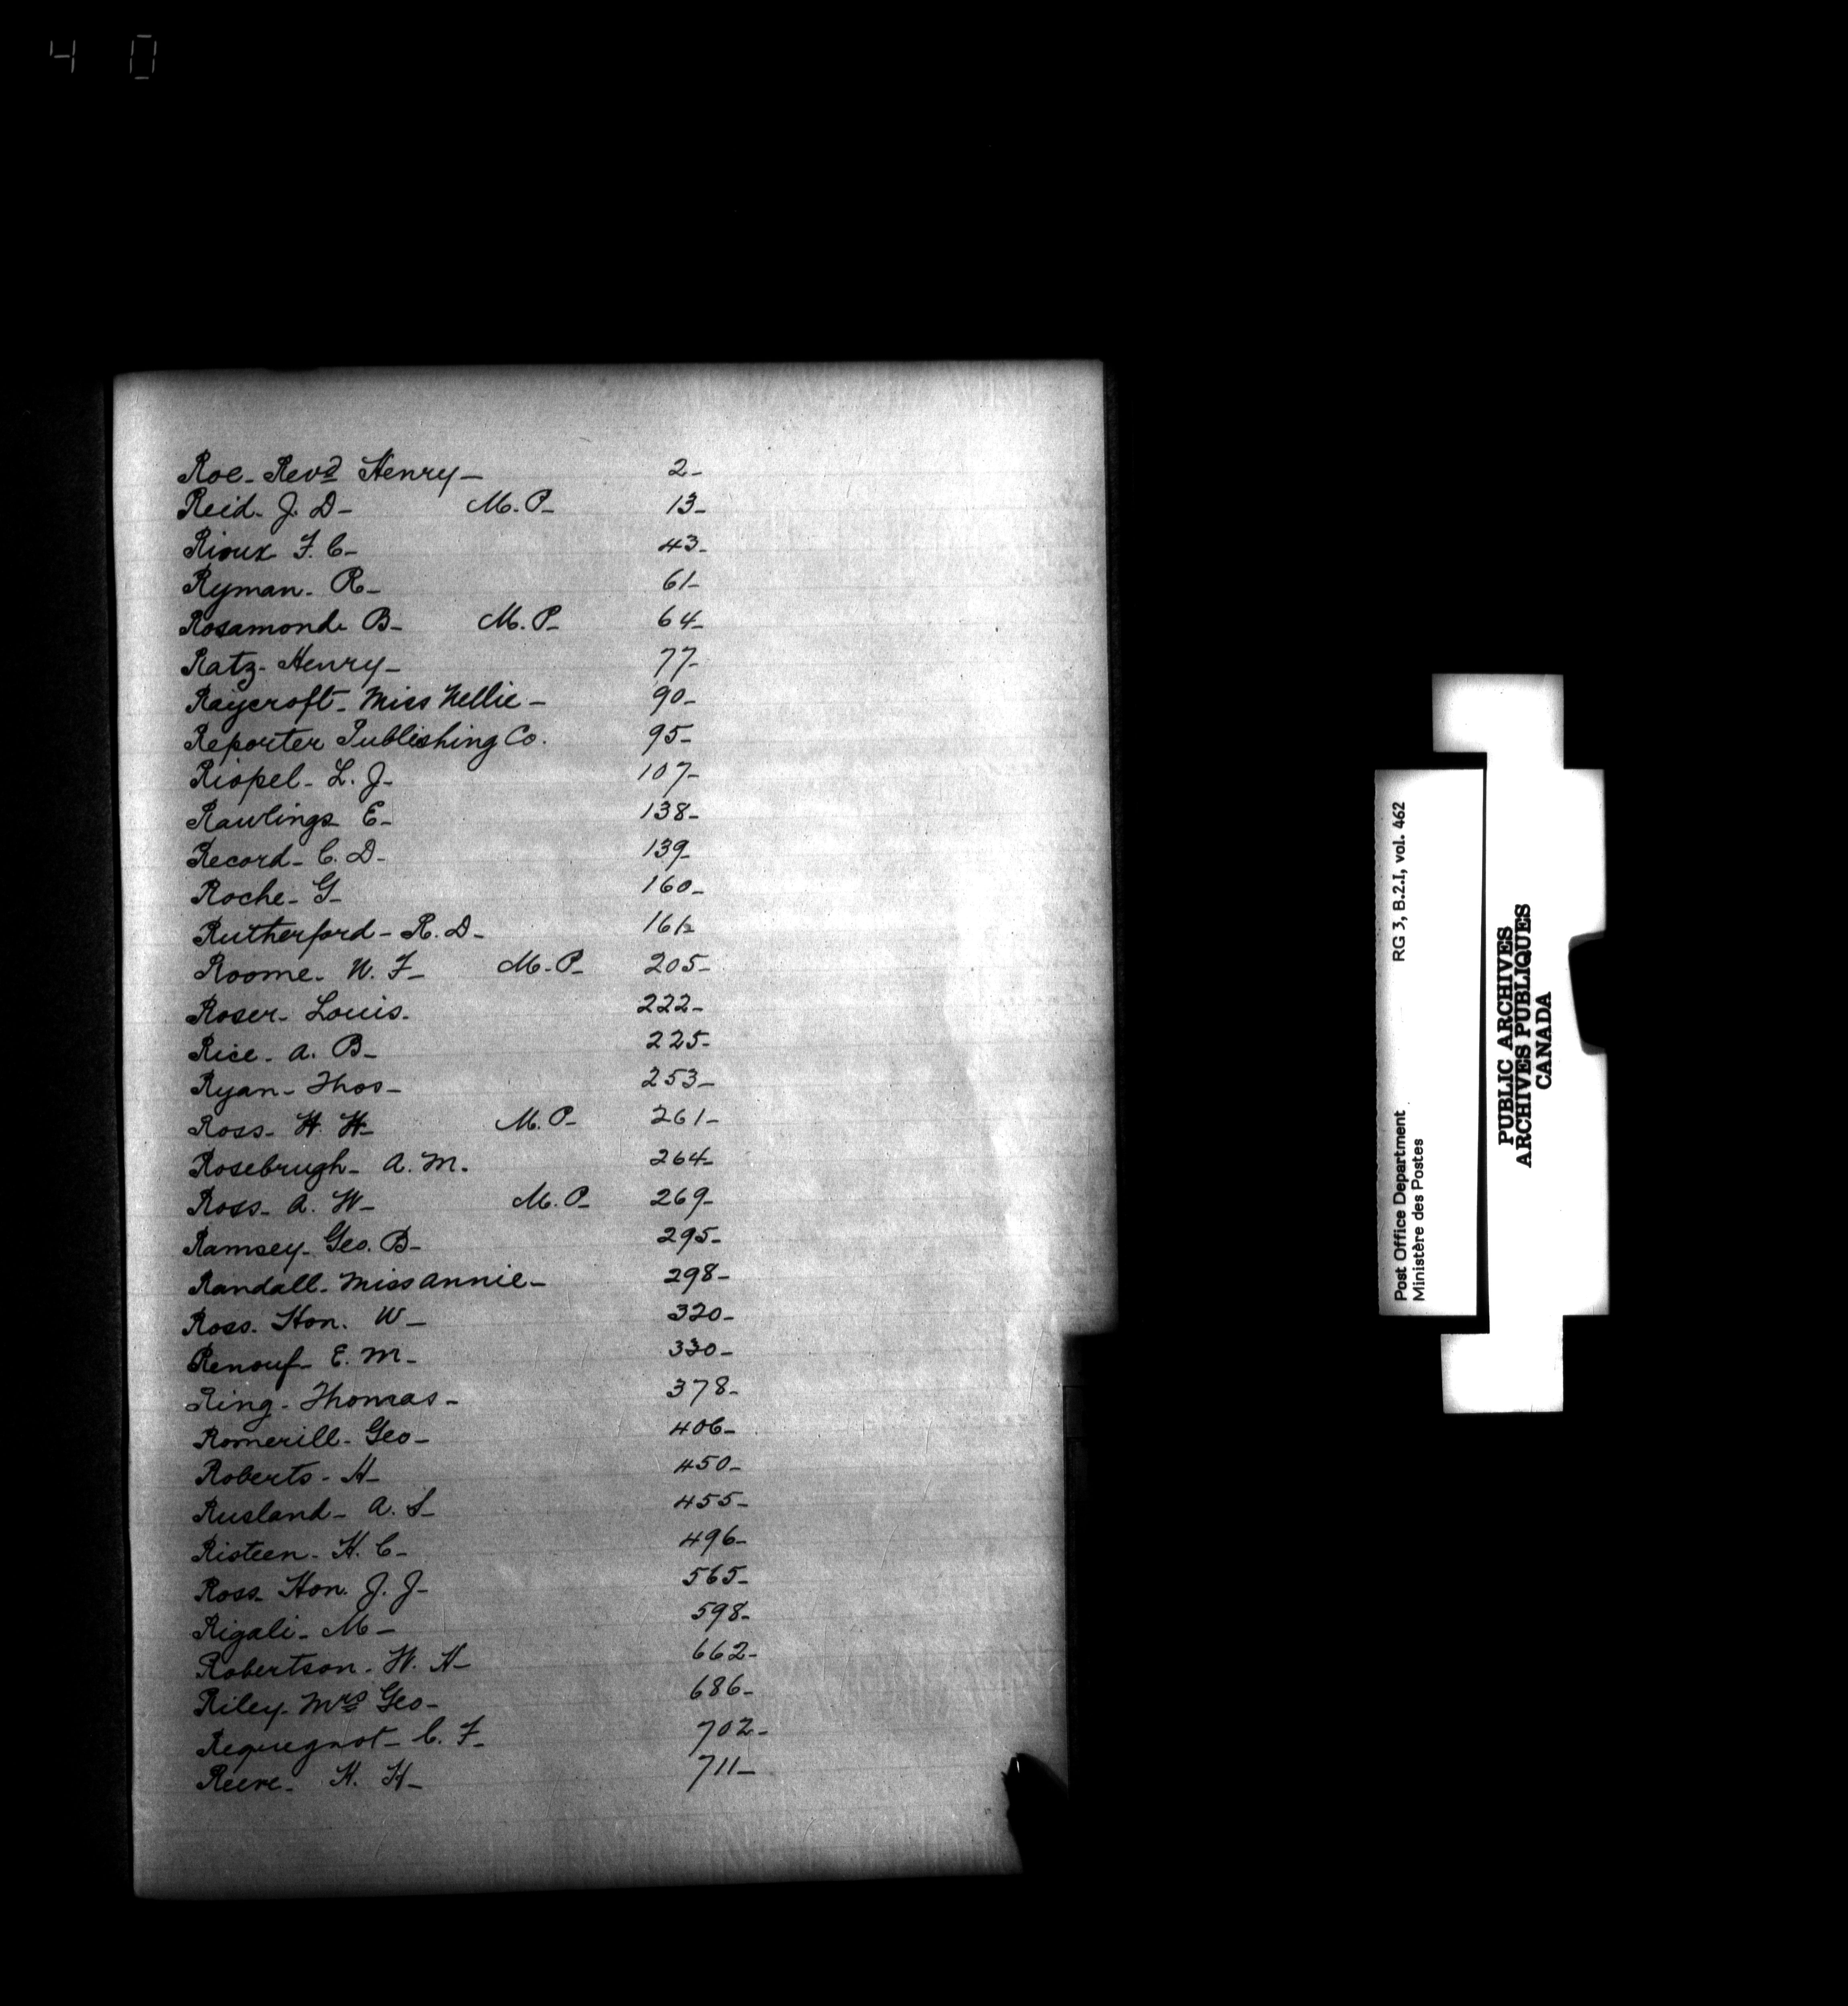 4 0
Roe - Revd Henry - 2 -
Reid - J. D - M. P - 13 -
Rioux F. C - 43 -
Ryman - R - 61 -
Rosamond B - M. P - 64 -
Ratz - Henry - 77 -
Raycroft - Miss Nellie - 90 -
Reporter Publishing Co. 95 -
Riopel - L. J - 107 -
Rawlings E - 138 -
Record - C. D - 139 -
Roche - G - 160 -
Rutherford - R. D - 161 -
Roome - W. F - M. P - 205 -
Roser - Louis - 222 -
Rice - A. B - 225 -
Ryan - Thos - 253 -
Ross - H. H - M. P - 261 -
Rosebrugh - A. M - 264 -
Ross - A. W - M. P - 269 -
Ramsey - Geo. B - 295 -
Randall - Miss Annie - 298 -
Ross. Hon. W - 320 -
Renouf - E. M - 330 -
Ring - Thomas - 378 -
Romerill - Geo - 406 -
Roberts - H - 450 -
Rusland - A. S - 455 -
Risteen - H. C - 496 -
Ross - Hon. J. J - 565 -
Rigali - M - 598 -
Robertson - W. H - 662 -
Riley - Mrs Geo - 686 -
C. F - 702 -
Reeve - H. H - 711 -
Post Office Department RG 3, B.2.I, vol. 462
Ministère des Postes
PUBLIC ARCHIVES
ARCHIVES PUBLIQUES
CANADA